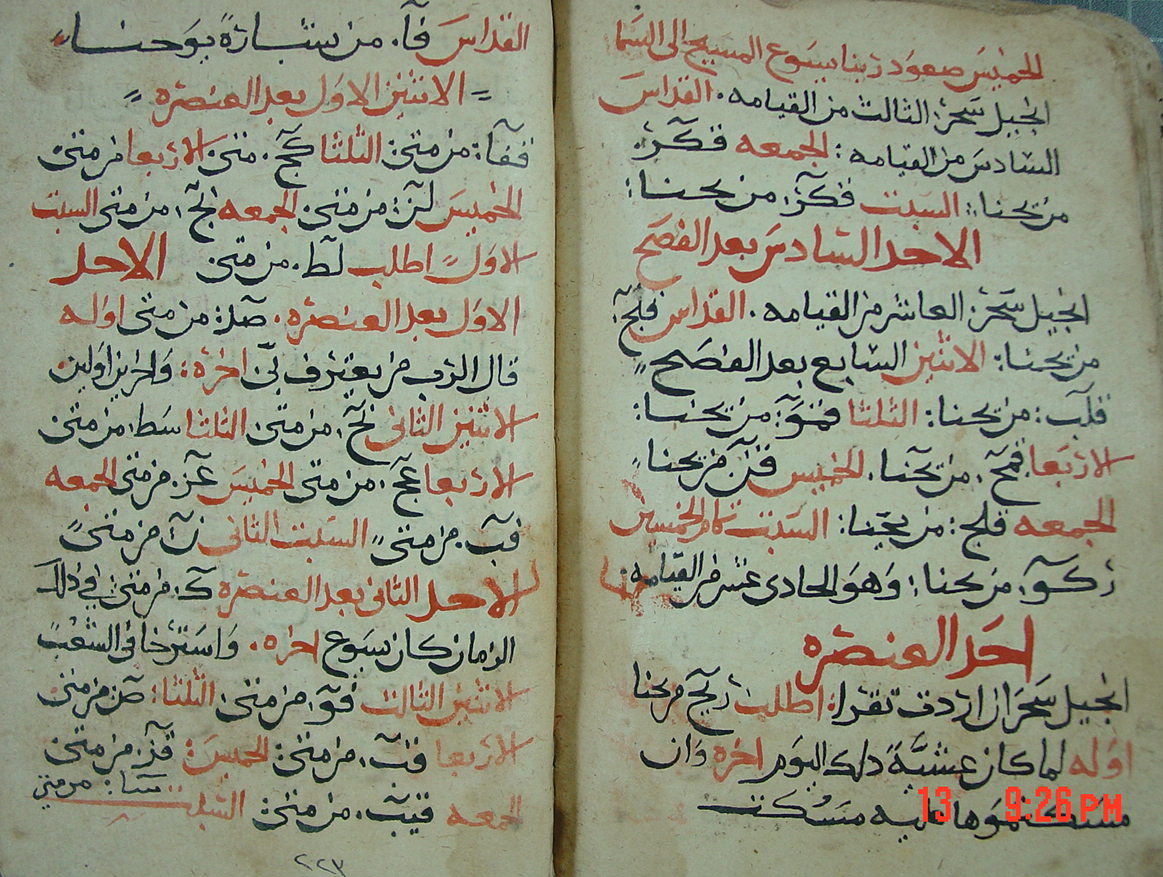 الخميس صعود ربنا يسوع المسيح الى السما
انجيل سحر: الثالث من القيامه. القداس
السادس من القيامه: الجمعه فكر:
من يحنا: السبت فكز: من يحنا:
الاحد السادس بعد الفصح
انجيل سحر: العاشر من القيامه. القداس فلج:
من يحنا: الاثنين السابع بعد الفصح
فلب: من يحنا: الثلثا فمو: من يحنا:
الاربعا فمح. من يحنا. الخميس فنر من يحنا
الجمعه فلج: من يحنا: السبت تمام الخمسين
ركو. من يحنا: وهو الحادى عشر من القيامه
احد العنصره
انجيل سحر ان اردت تقرا: اطلب ريج من يحنا
اوله لما كان عشية ذلك اليوم اخره وان
مسكتموها عليه مسكت
13 9:26 PM
القداس فا. من بشارة يوحنا
= الاثنين الاول بعد العنصره =
ففا: من متى: الثلثا كج. متى الاربعا من متى
الخميس لز: من متى. الجمعه نج: من متى السبت
الاول اطلب لط. من متى الاحد
الاول بعد العنصره. صلد: من متى اوله
قال الرب من يعترف بى اخره: واخرين اولين
الاثنين الثانى نح. من متى. الثلثا سط. من متى
الاربعا عج. من متى الخميس عز. من متى الجمعه
فب. من متى السبت الثانى ن من متى
الاحد الثانى بعد العنصره ك. من متى فى ذلك
الزمان كان يسوع اخره. واسترخا فى الشعب
الاثنين الثالث فو. من متى. الثلثا: صز من متى
الاربعا فب. من متى: الخميس: قد. من متى
الجمعه قيب. من متى: السبت من متى
٢٢٣